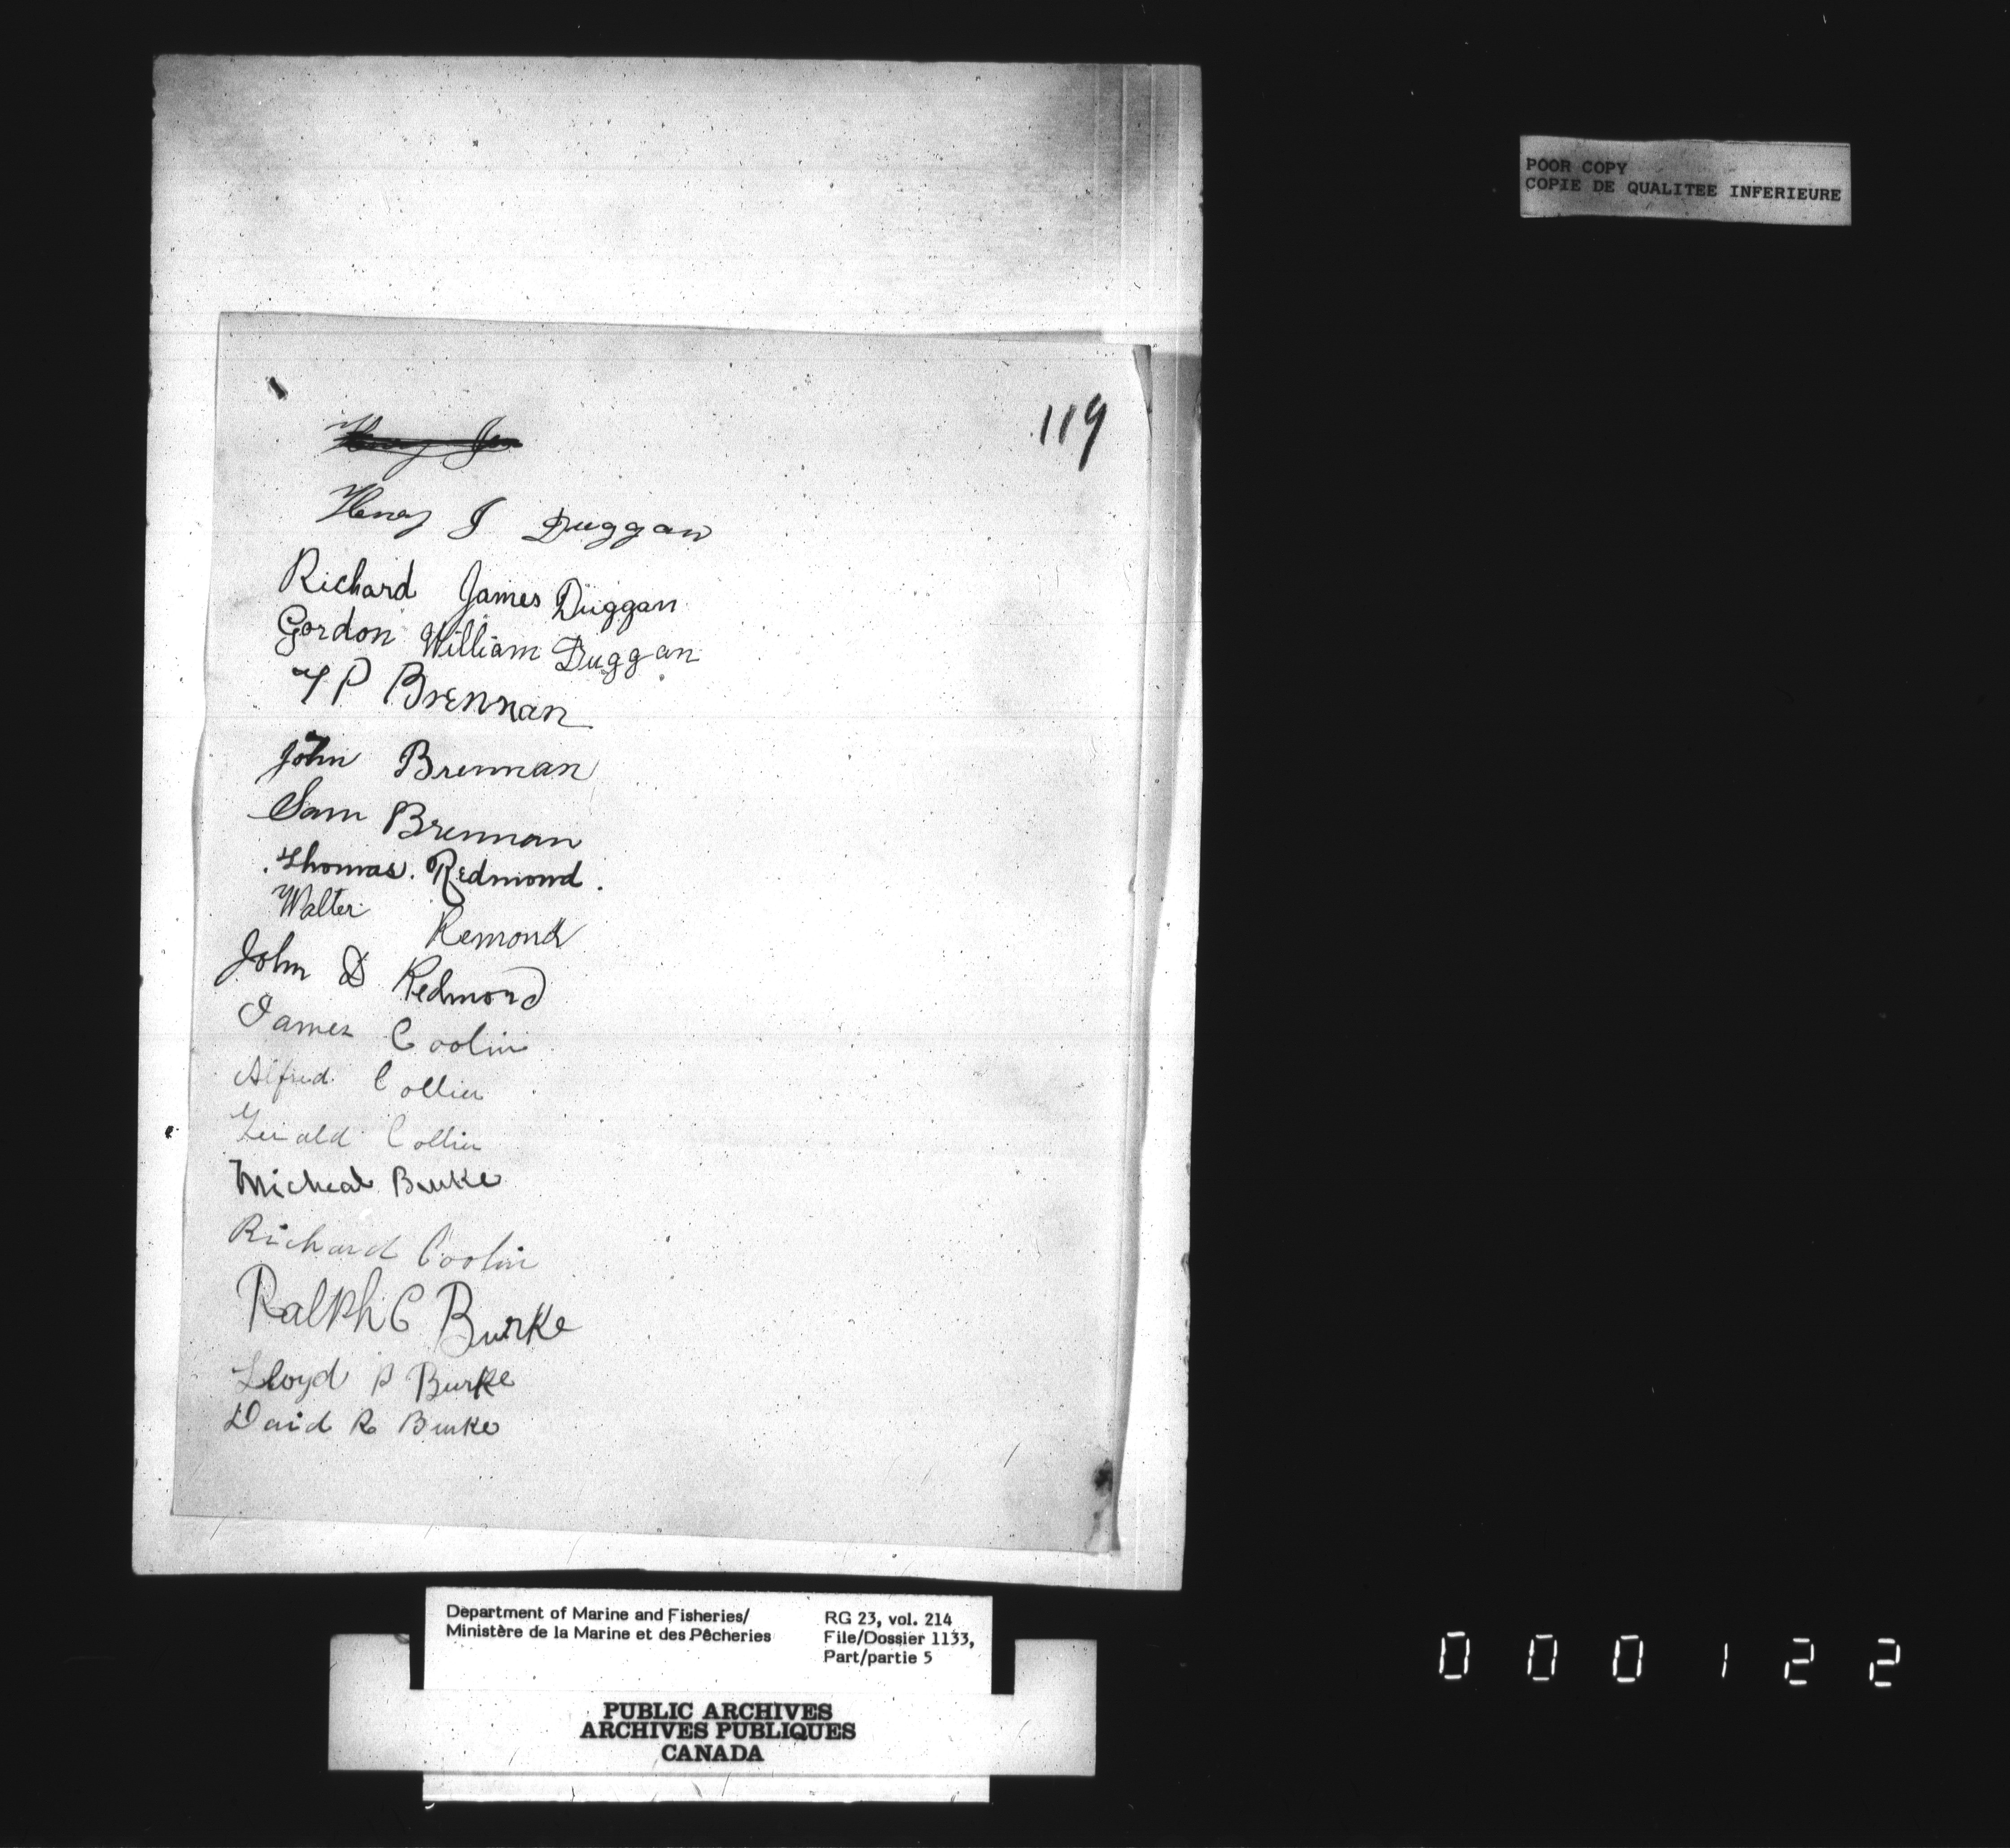 POOR COPY
COPIE DE QUALITEE INFERIEURE
119
Henry J Duggan
Richard James Duggan
Gordon William Duggan
P Brennan
John Brennan
Sam Brennan
Thomas. Redmond.
Walter Remond
John D Redmond
James Coolin
Alfred Collier
Gerald Collier
Micheal Burke
Richard Coolin
Ralph C Burke
Lloyd P Burke
Daid R Burke
Department of Marine and Fisheries/
Ministère de la Marine et des Pêcheries
RG 23, vol. 214
File/Dossier 1133,
Part/partie 5
PUBLIC ARCHIVES
ARCHIVES PUBLIQUES
CANADA
000122